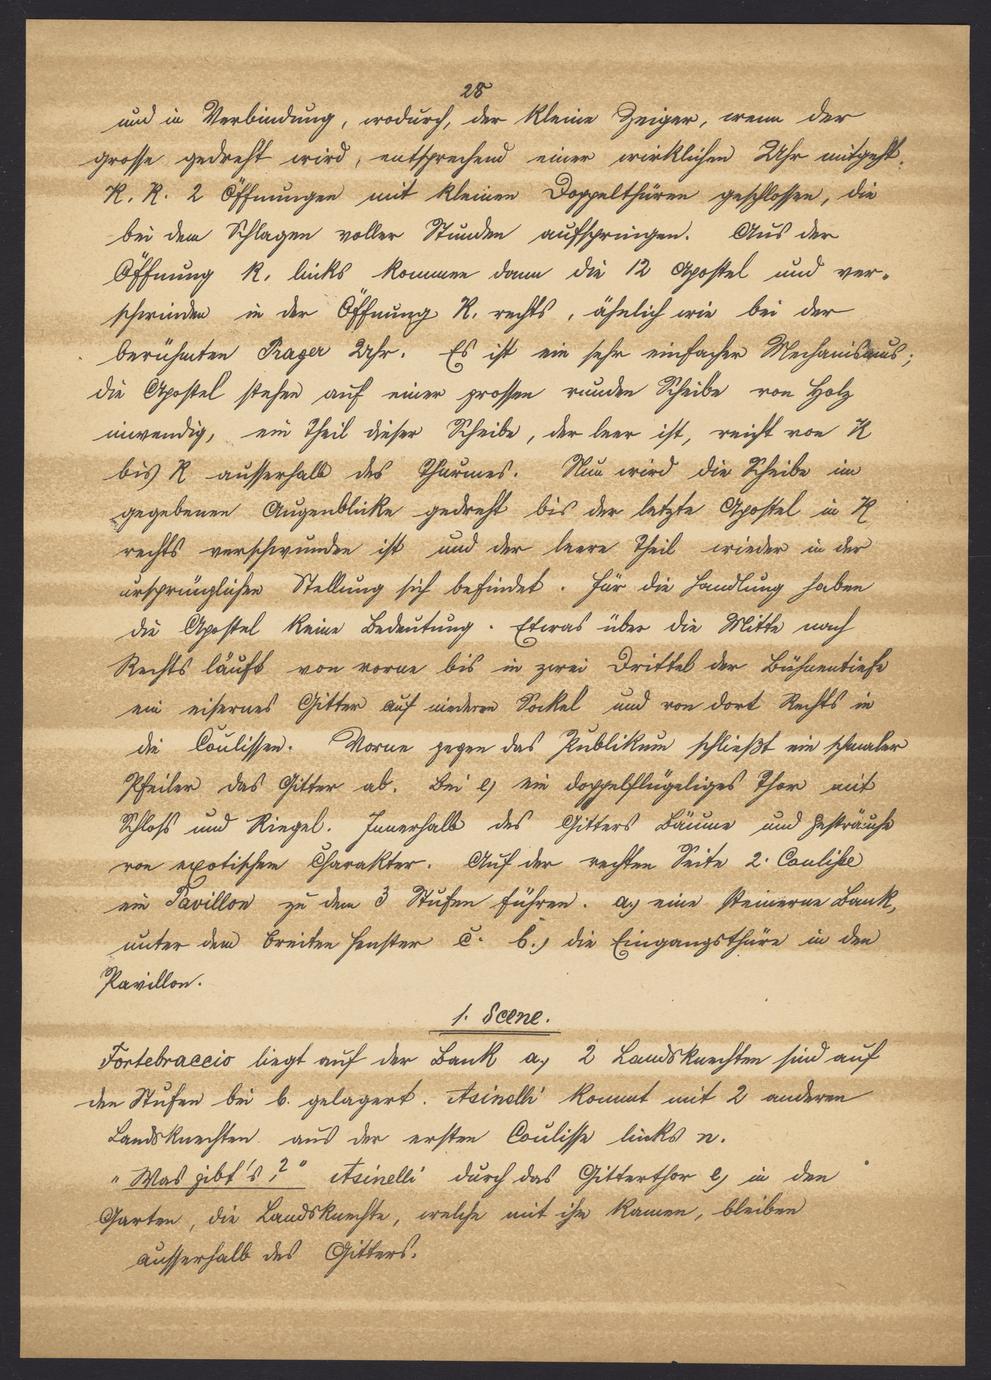 28
und in Verbindung, wodurch, der kleine Zeiger, wenn der
grosse gedreht wird, entsprechend einer wirklichen Uhr mitgeht.
K. K. 2 Öffnungen mit kleinen Doppelthüren geschlossen, die
bei dem Schlagen voller Stunden aufspringen. Aus der
Öffnung K. links kommen dann die 12 Apostel und ver-
schwinden in der Öffnung K. rechts, ähnlich wie bei der
berühmten Prager Uhr. Es ist ein sehr einfacher Mechanismus;
die Apostel stehen auf einer grossen runden Scheibe von Holz
inwendig, ein Theil dieser Scheibe, der leer ist, reicht von K
bis K ausserhalb des Thurmes. Nun wird die Scheibe im
gegebenen Augenblicke gedreht bis der letzte Apostel in K
rechts verschwunden ist und der leere Theil wieder in der
ursprünglichen Stellung sich befindet. Für die Handlung haben
die Apostel keine Bedeutung. Etwas über die Mitte nach
Rechts läuft von vorne bis in zwei Drittel der Bühnentiefe
ein eisernes Gitter auf niederen Sockel und von dort Rechts in
die Coulissen. Vorne gegen das Publikum schließt ein schmaler
Pfeiler das Gitter ab. Bei e) ein doppelflügeliges Thor mit
Schloß und Riegel. Innerhalb des Gitters Bäume und Gesträuche
von exotischen Charakter. Auf der rechten Seite 2. Coulisse
ein Pavillon zu dem 3 Stufen führen. a) eine steinerne Bank,
unter dem breiten Fenster c. b.) die Eingangsthüre in den
Pavillon.
1. Scene.
Fortebraccio liegt auf der Bank a) 2 Landsknechten sind auf
den Stufen bei b. gelagert. Asinelli kommt mit 2 anderen
Landsknechten aus der ersten Coulisse links n.
"Was gibt's?" Asinelli durch das Gitterthor e) in den
Garten, die Landsknechte, welche mit ihm kamen, bleiben
ausserhalb des Gitters.